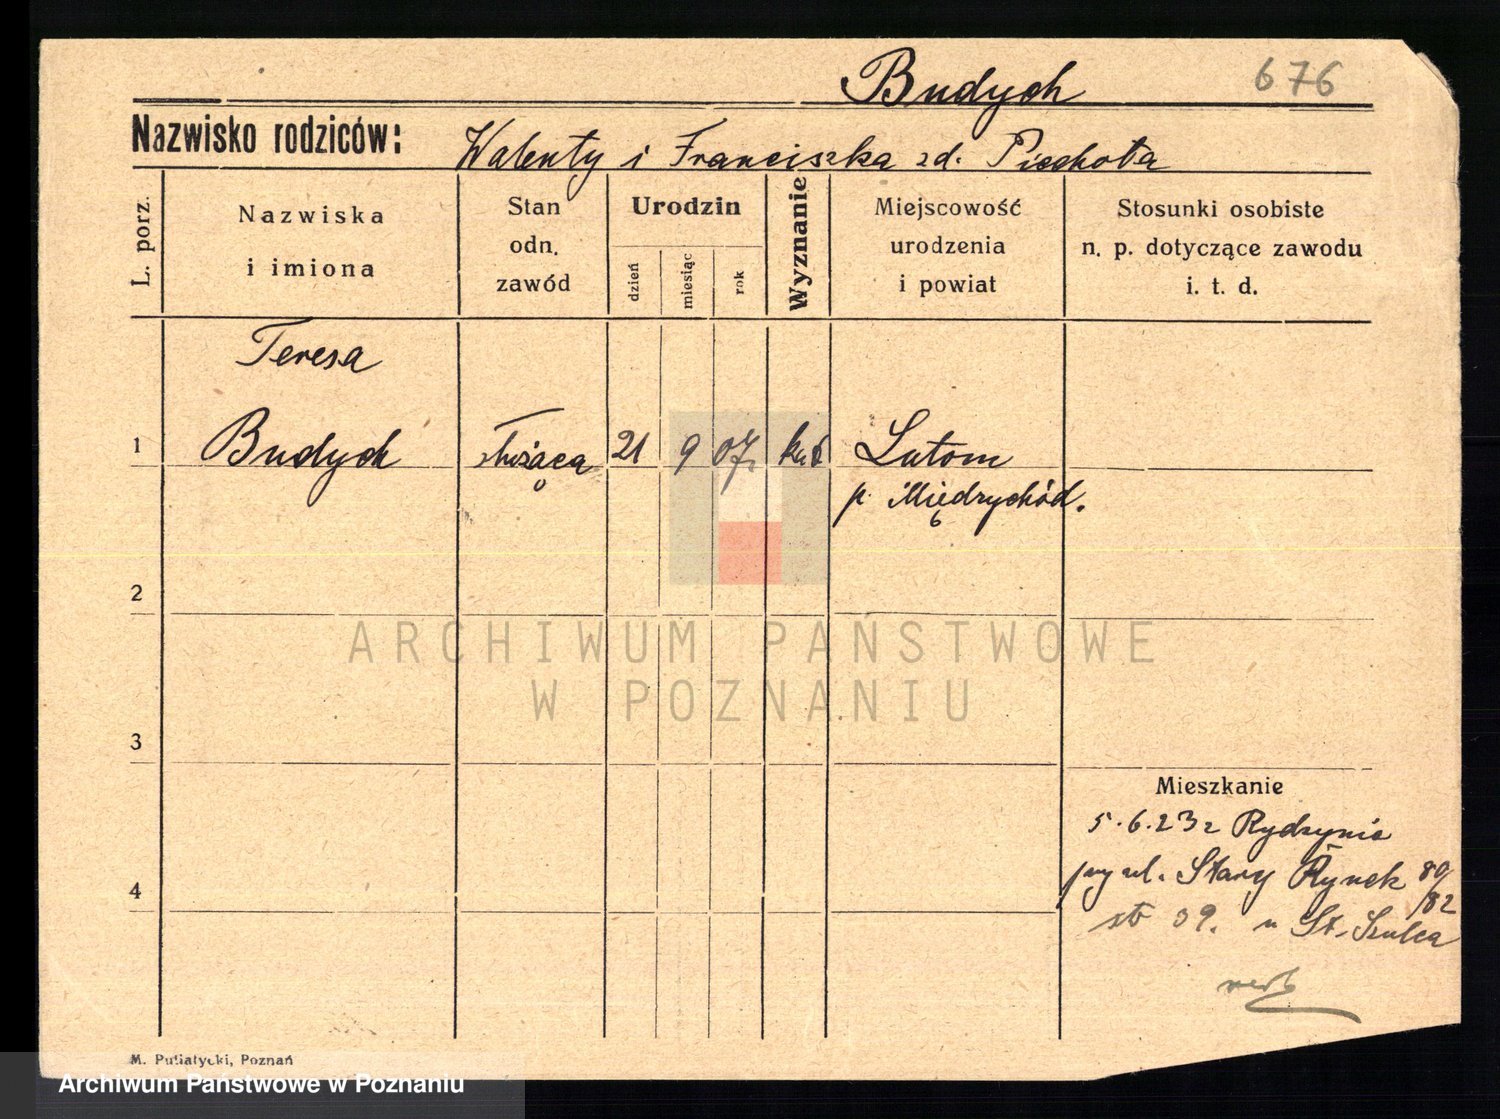 Budych 676
Nazwisko rodziców: Walenty i Franciszka zd. Piechota
L. porz.
Nazwiska
i imiona
Stan
odn.
zawód
Urodzin
dzień
miesiąc
rok
Wyznanie
Miejscowość
urodzenia
i powiat
Stosunki osobiste
n. p. dotyczące zawodu
i. t. d.
Teresa
1 Budych służąca 21 9 07r kat Lutom
p. Międzychód.
2
ARCHIWUM PAŃSTWOWE
W POZNANIU
3
Mieszkanie
5.6.23r Rydzynie
przy ul. Stary Rynek 80/
82
4
39. u St. Szulca
M. Putiatycki, Poznań
Archiwum Państwowe w Poznaniu